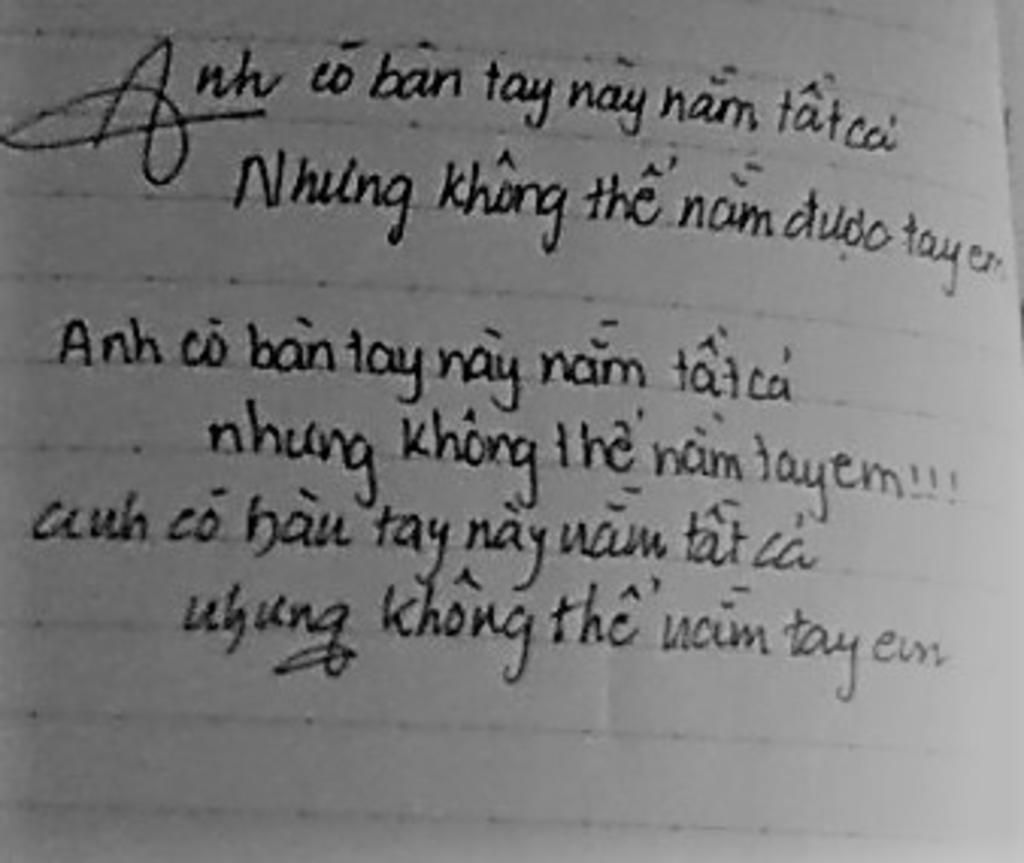 Anh có bàn tay này nắm tất cả
Nhưng không thể nắm được tay em
Anh có bàn tay này nắm tất cả
nhưng không thể nắm tay em!!!
anh có bàn tay này nắm tất cả
nhưng không thể nắm tay em